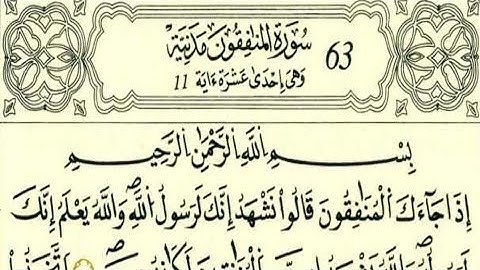 63 سُورَةُ الْمُنَٰفِقُونَ مَدَنِيَّة
وَهْىَ إِحْدَىٰ عَشْرَةَ ءَايَة 11
بِسْمِ اِ۬للَّهِ اِ۬لرَّحْمَٰنِ اِ۬لرَّحِيمِ
إِذَا جَآءَكَ اَ۬لْمُنَٰفِقُونَ قَالُواْ نَشْهَدُ إِنَّكَ لَرَسُولُ اُ۬للَّهِۖ وَاللَّهُ يَعْلَمُ إِنَّكَ